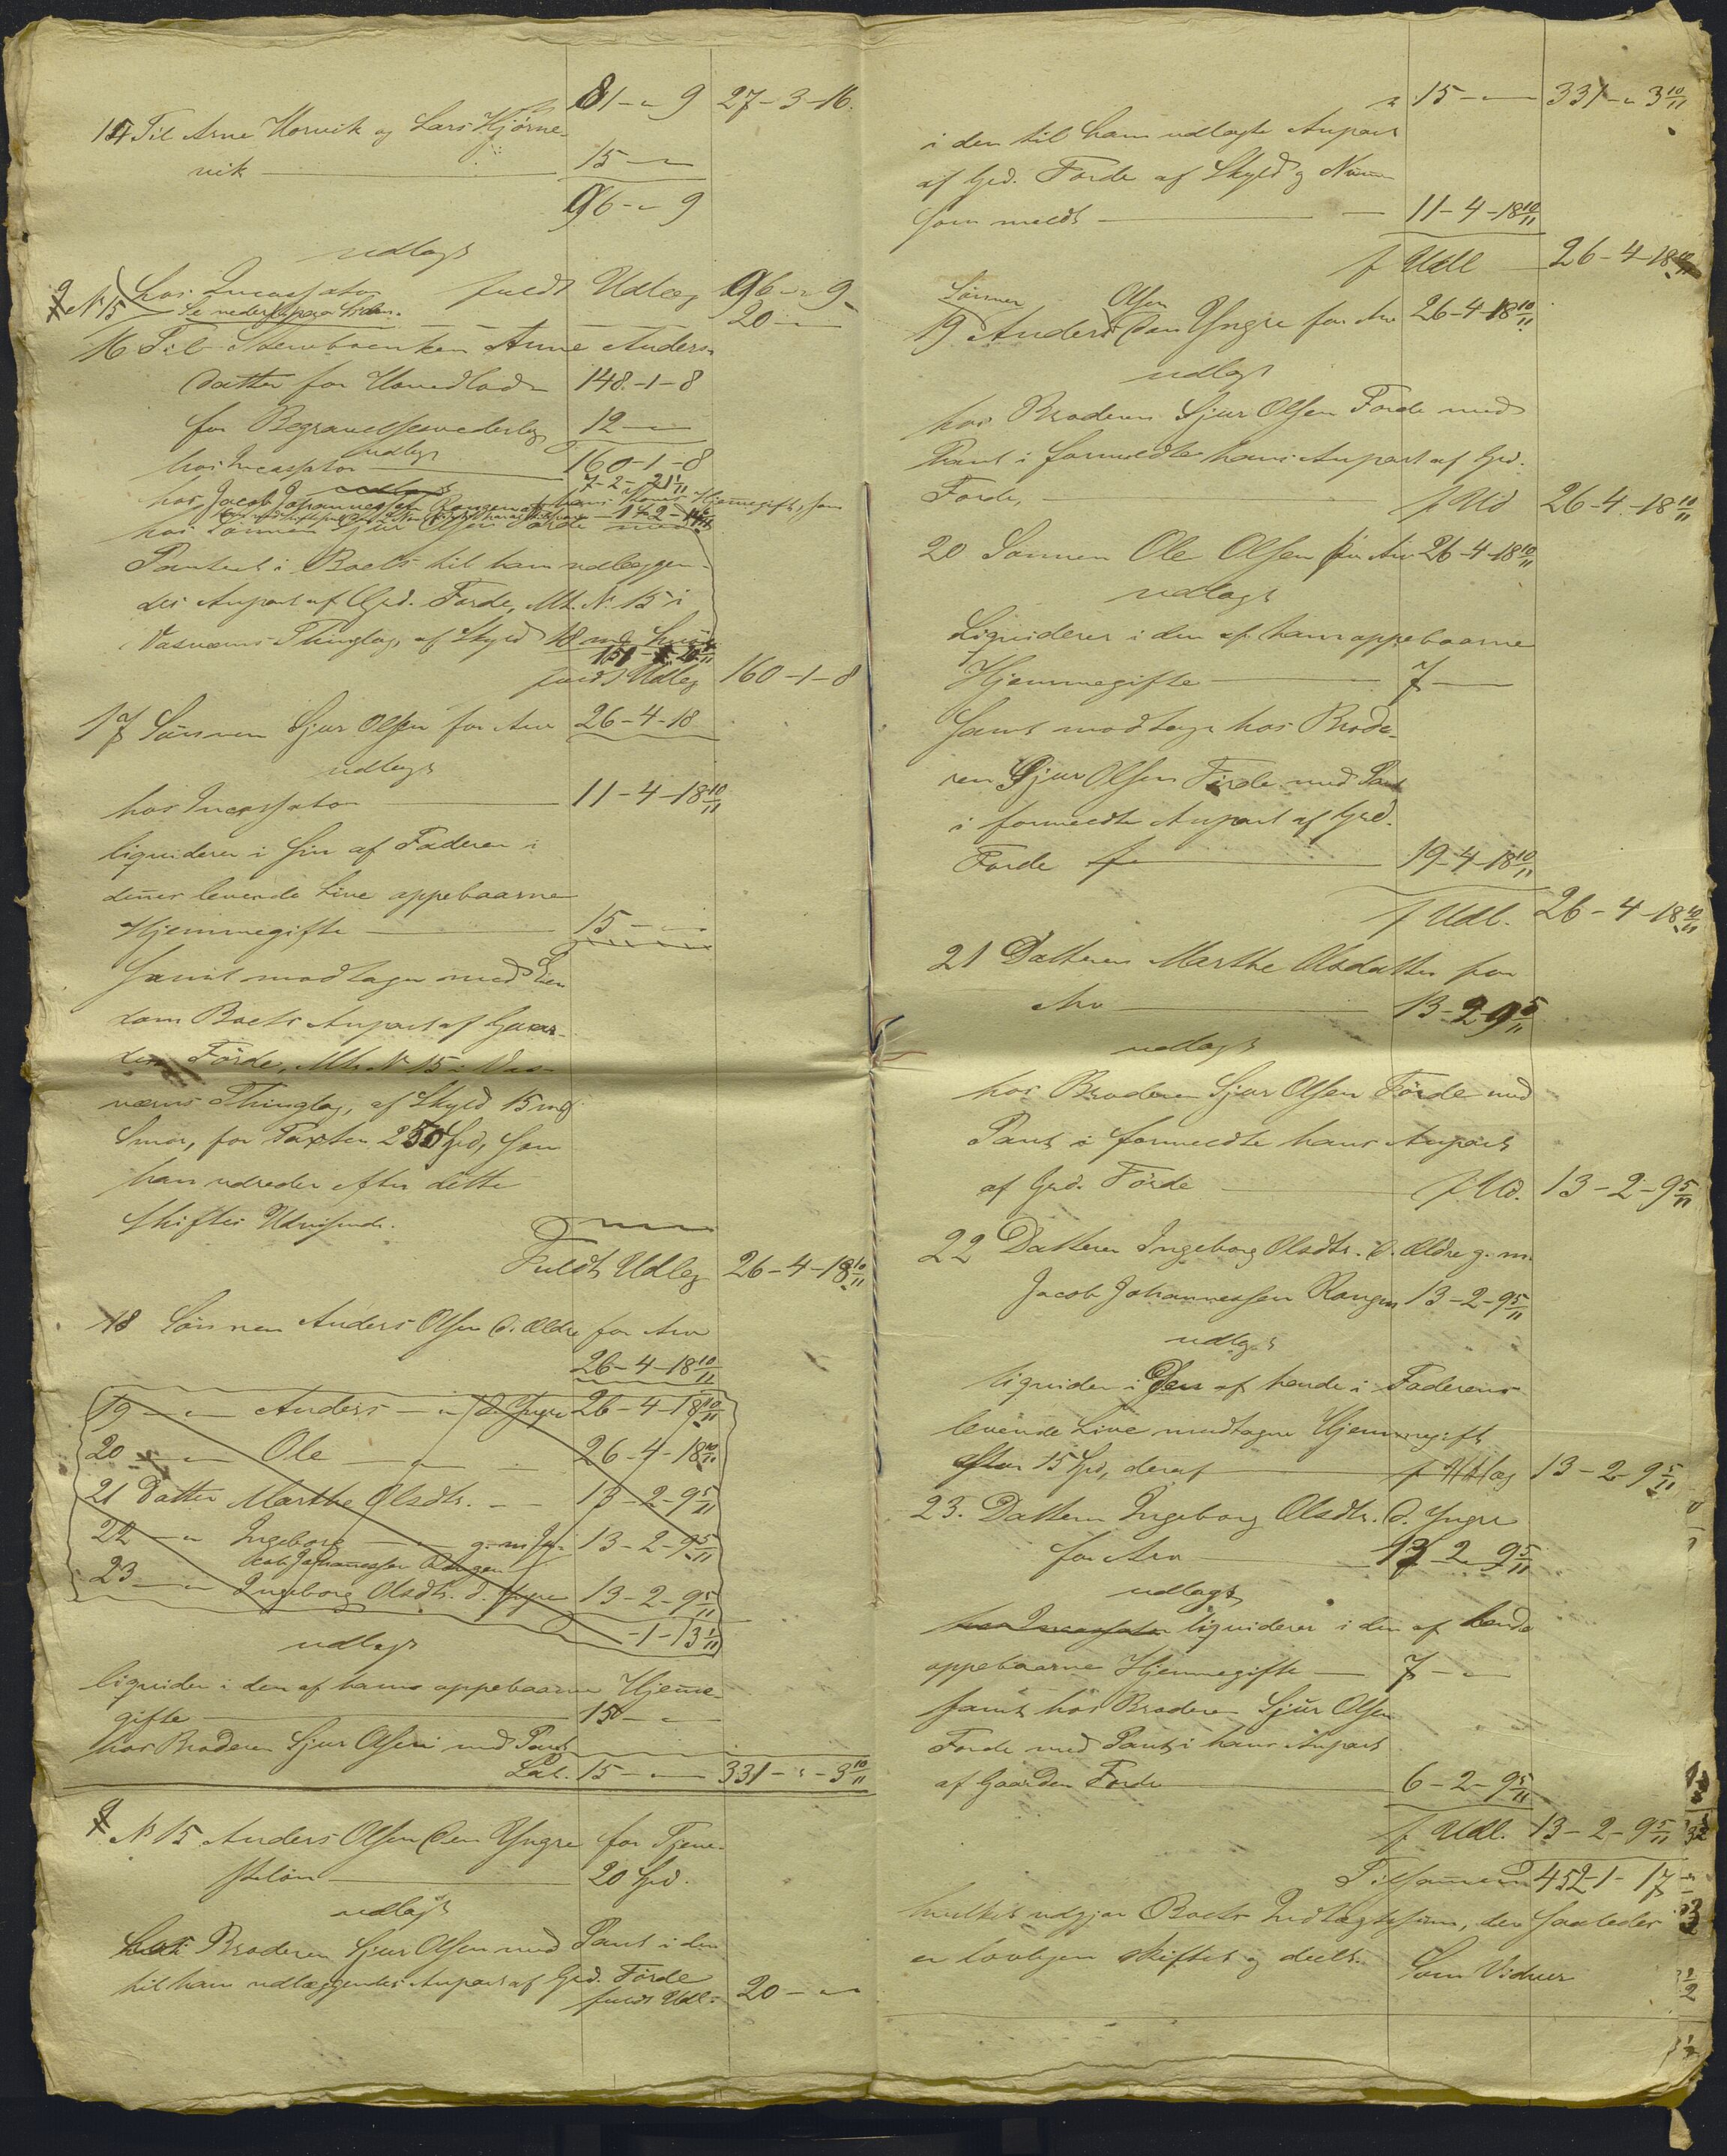 81 – " 9 27 – 3 – 16.
14 Til Arne Horvik og Lars Hjørne-
vik 15 – "
96 – " 9
udlagt
hos Incassator fuldt Udlæg 96 – " 9
No 15 Se nederst paa Siden. 20 – "
16 Til Anne Anders
datter for Hovedlod 148 – 1 – 8
for Begravelsesvederlag 12 – "
udlagt 160 – 1 – 8
hos Incassator 7 – 2 – 21 1/11
hos Jacob Johannessen Rangen af hans Kones Hjemmegift, som
hos Sønnen Sjur Olsen Førde med
Panteret i Boets til ham udlæggen-
des Anpart af Grd. Førde, Mt. No 15 i
Vasværns Thinglag, af Skyld
fuldt Udlæg 160 – 1 – 8
17 Sønnen Sjur Olsen for Arv 26 – 4 – 18
udlagt
hos Incassator 11 – 4 – 18 10/11
liquiderer i sin af Faderen i
dennes levende Live oppebaarne
Hjemmegifte 15 – "
Samt modtager med Eien
dom Boets Anpart af Gaar-
den Førde, Mt. No 15 i Vas-
værns Thinglag, af Skyld 15 mrk
Smør, for Taxten 250 Spd, som
han udreder efter dette
Skiftes Udvisende.
Fuldt Udlæg 26 – 4 – 18 10/11
18 Sønnen Anders Olsen d. Ældre for Arv
26 – 4 – 18 10/11
19 – " – Anders – " – d. Yngre 26 – 4 – 18 10/11
20 – " – Ole – " – 26 – 4 – 18 10/11
21 Datter Marthe Olsdtr. – – 13 – 2 – 9 5/11
22 – " Ingeborg – g. m. Ja- 13 – 2 – 9 5/11
cob Johannessen Rangen
23 – " – Ingeborg Olsdtr. d. Yngre 13 – 2 – 9 5/11
– 1 – 13 1/11
udlagt
liquiderer i den af ham oppebaarne Hjemme-
gifte 15 – "
hos Broderen Sjur Olsen med Pant
Lat. 15 – " 331 – " – 3 10/11
No 15 Anders Olsen den Yngre for Tjene-
steløn 20 Spd.
udlagt
hos Broderen Sjur Olsen med Pant i den
til ham udlæggendes Anpart af Grd. Førde
fuldt Udl. 20 – "
15 – " 331 – " 3 10/11
i den til ham udlagte Anpart
af Grd. Førde af Skyld og Numer
som meldt 11 – 4 – 18 10/11
f Udl 26 – 4 – 18 10/11
19 Sønnen Anders Olsen den Yngre for Arv 26 – 4 – 18 10/11
udlagt
hos Broderen Sjur Olsen Førde med
Pant i formeldte hans Anpart af Grd.
Førde, f Ud 26 – 4 – 18 10/11
20 Sønnen Ole Olsen for Arv 26 – 4 – 18 10/11
udlagt
Liquiderer i den af ham oppebaarne
Hjemmegifte 7 –
Samt modtager hos Brode-
ren Sjur Olsen Førde med Pant
i formeldte Anpart af Grd.
Førde 19 – 4 – 18 10/11
f Udl. 26 – 4 – 18 10/11
21 Datteren Marthe Olsdatter for
Arv 13 – 2 – 9 5/11
udlagt
hos Broderen Sjur Olsen Førde med
Pant i formeldte hans Anpart
af Grd. Førde f Ud. 13 – 2 – 9 5/11
22 Datteren Ingeborg Olsdtr. d. Ældre g. m.
Jacob Johannessen Rangen 13 – 2 – 9 5/11
udlagt
liquiderer i den af hende i Faderens
levende Live modtagne Hjemmegift
15 Spd, deraf f Udlæg 13 – 2 – 9 5/11
23. Datteren Ingeborg Olsdtr. d. Yngre
for Arv 13 – 2 – 9 5/11
udlagt
hos Incassator liquiderer i den af hende
oppebaarne Hjemmegifte 7 – "
samt hos Broderen Sjur Olsen
Førde med Pant i hans Anpart
af Gaarden Førde 6 – 2 – 9 5/11
f Udl. 13 – 2 – 9 5/11
Tilsammen 452 – 1 – 17
hvilket udgjør Boets Indtægtssum, der saaledes
er lovligen skiftet og deelt. Som Vidner